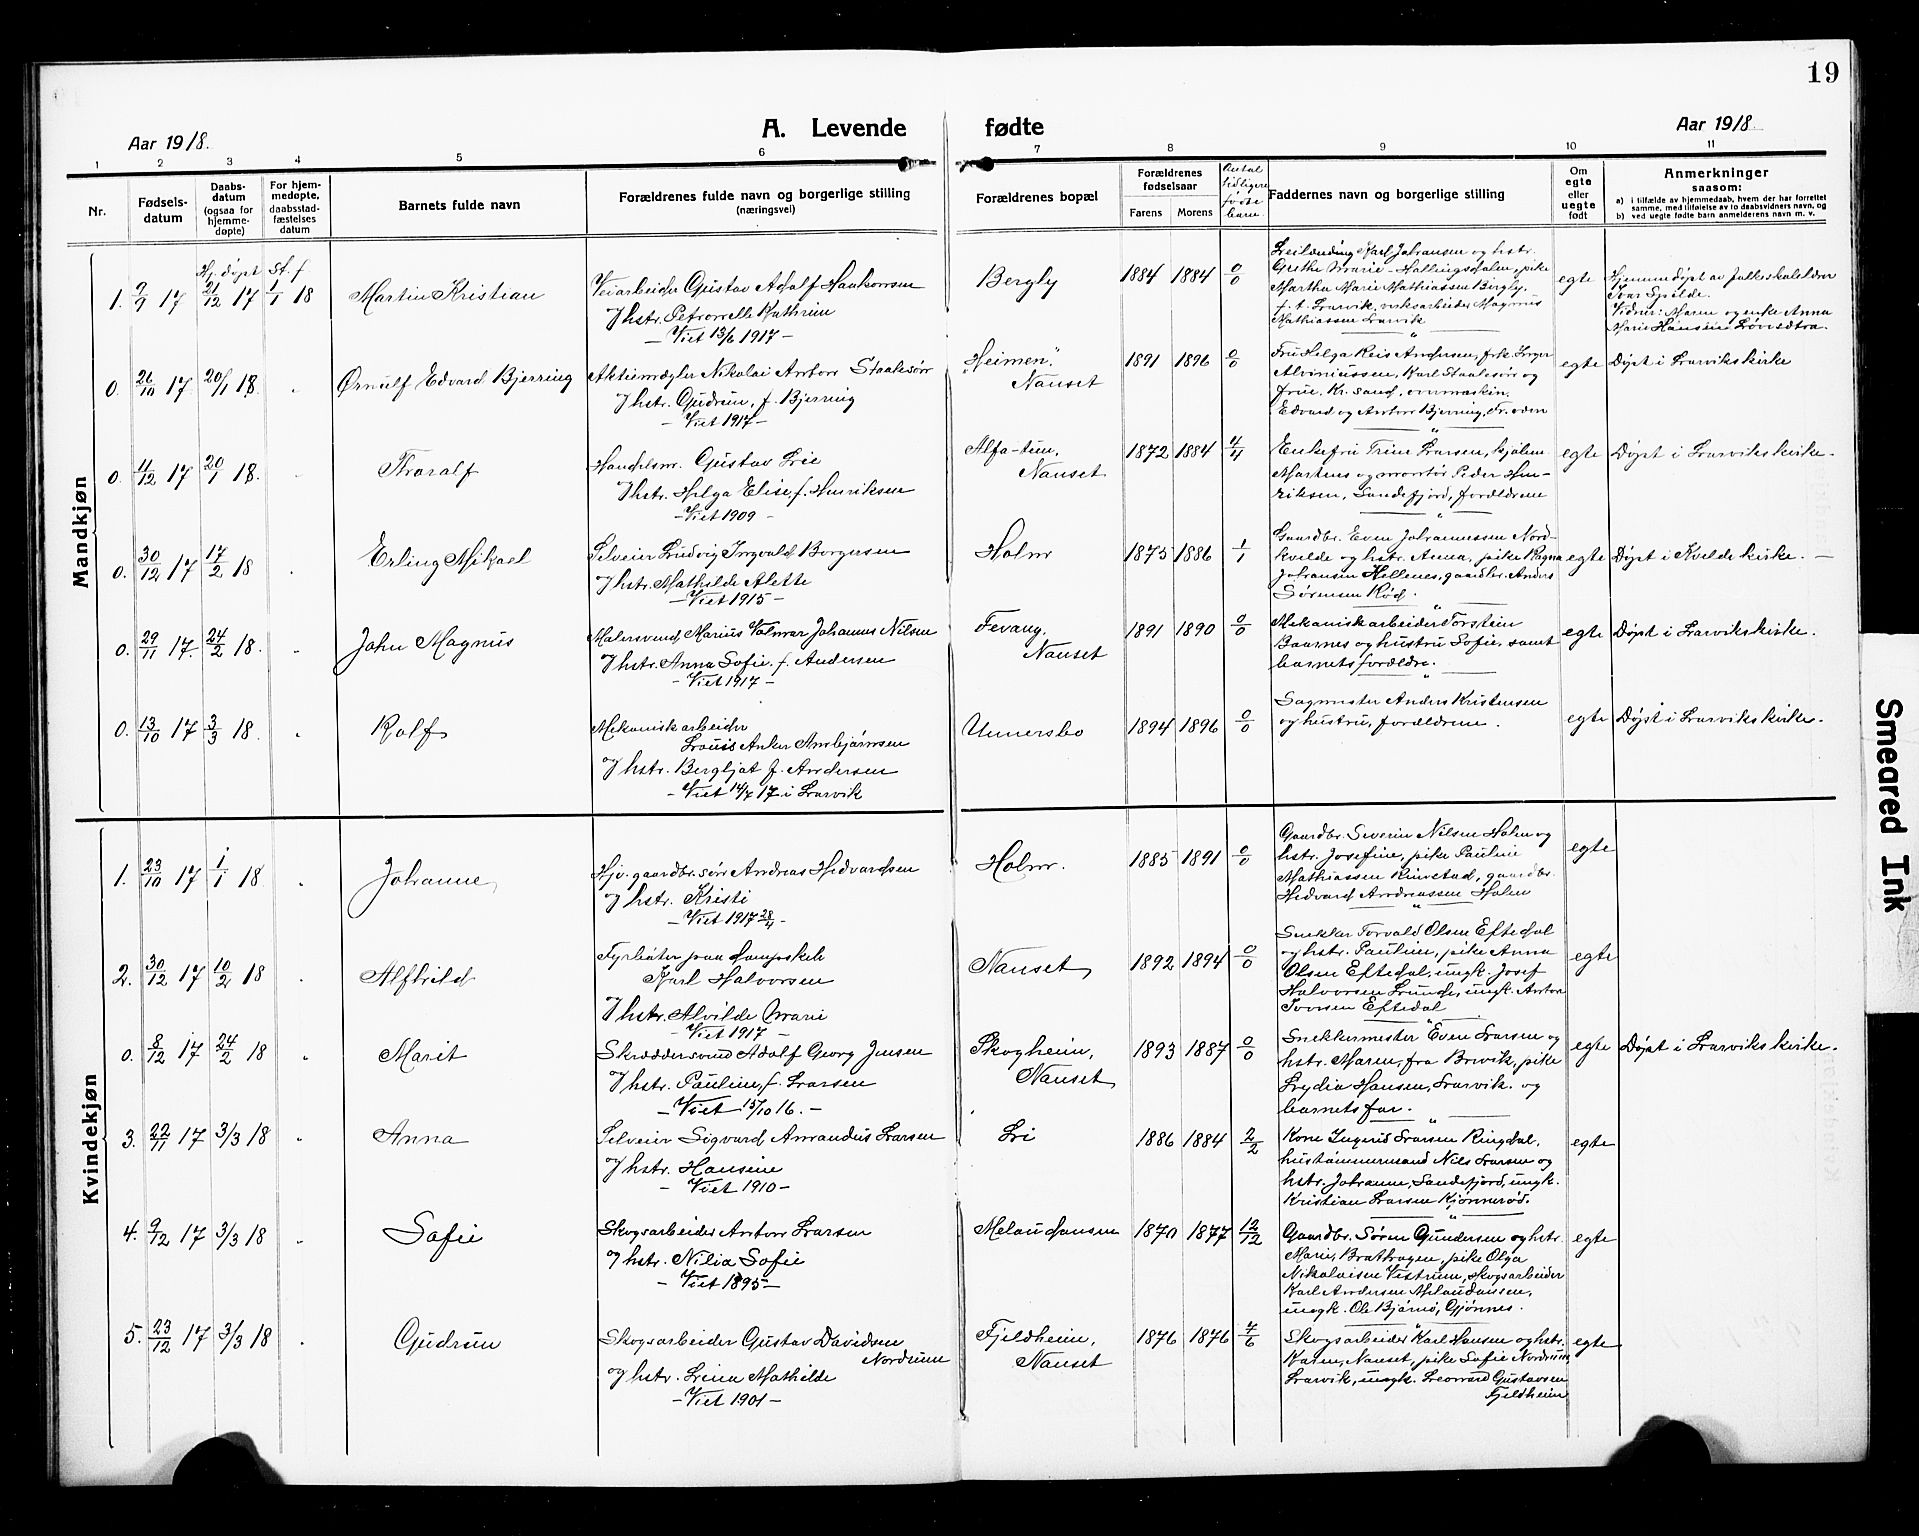 19
Aar 1918.
A. Levende fødte
Aar 1918.
1 2 3 4 5 6 7 8 9 10 11
Nr.
Fødsels-
datum
Daabs-
datum
(ogsaa for
hjemme-
døpte)
For hjem-
medøpte,
daabsstad-
fæstelses
datum
Barnets fulde navn
Forældrenes fulde navn og borgerlige stilling
(næringsvei)
Forældrenes bopæl
Forældrenes
fødselsaar
Farens Morens
Antal
tidligere
fødte
barn
Faddernes navn og borgerlige stilling
Om
egte
eller
uegte
født
Anmerkninger
saasom:
a) i tilfælde av hjemmedaab, hvem der har forrettet
samme, med tilføielse av to daabsvidners navn, og
b) ved uegte fødte barn anmelderens navn m. v.
Mandkjøn
Hj. døpt St. f.
1. 9/9 17 21/12 17 1/1 18
Martin Kristian
Veiarbeider Gustav Adolf Haakonsen
og hstr. Petronelle Kathrine
- Viet 13/6 1917 -
Bergly
1884 1884 0/0
Leilænding Karl Johansen og hstr.
Grethe Marie Hallingsdalen, pike
Martha Marie Mathiassen Bergly,
f. t. Larvik, verksarbeider Magnus
Mathiassen Larvik
egte
Hjemmedøpt av folkeskolelærer
Ivar Spilde.
Vidner: Maren og enke Anna
Marie Hansen Løvsætra.
0. 26/10 17 20/1 18. "
Ørnulf Edvard Bjerring
Aktiemægler Nikolai Anton Staalesør
og hstr. Gudrun, f. Bjerring
- Viet 1917 -
"Heimen",
Nanset
1891 1896 0/0
Fru Helga Reis Andersen, frk. Inger
Alviniussen, Karl Staalesør og
frue, Kr. sand, overmaskin.
Edvard og Anton Bjerring, Fr.værn
egte
Døpt i Larviks kirke
0. 4/12 17 20/1 18. "
Thoralf
Handelsm. Gustav Lie
og hstr. Helga Elise f. Henriksen
- Viet 1909 -
Alfa-tun,
Nanset
1872 1884 4/4
Enkefru Trine Larsen, Hjalm.
Martens og montør Peder Hen-
riksen, Sandefjord, forældrene
egte
Døpt i Larviks kirke -
0. 30/12 17 17/2 18 "
Erling Mikael
Selveier Ludvig Ingvald Borgersen
og hstr. Mathilde Alette
- Viet 1915 -
Holm
1875 1886 1/1
Gaardbr. Even Johannessen Nord-
kvelde og hstr. Anna, pike Ragna
Johansen Hellenes, gaardbr. Anders
Sørensen Rød.
egte
Døpt i Kvelde kirke. -
0. 29/11 17. 24/2 18. "
John Magnus
Malersvend Marius Valmar Johannes Nilsen
og hstr. Anna Sofie f. Andersen
- Viet 1917 -
Fevang,
Nanset
1891 1890 0/0
Mekanisk arbeider Torstein
Baarnes og hustru Sofie, samt
barnets forældre.
egte
Døpt i Larviks kirke.
0. 13/10 17 3/3 18. "
Rolf
Mekanisk arbeider
Louis Anker Arnbjørnsen
og hstr. Bergljot f. Andersen
- Viet 14/7 17 i Larvik
Unnersbo
1894 1896 0/0
Sagmester Anders Kristensen
og hustru, forældrene.
egte
Døpt i Larviks kirke.
Kvindekjøn
1. 23/10 17 1/1 18 "
Johanne
Hjv. gaardbr. søn Andreas Hedvardsen
og hstr. Kristi
- Viet 1917 28/4 -
Holm.
1885 1891 0/0
Gaardbr. Severin Nilsen Holm og
hstr. Josefine, pike Pauline
Mathiassen Rinestad, gaardbr.
Hedvard Andreassen Holm
egte
2. 30/12 17 10/2 18 "
Alfhild
Fyrbøter paa dampskib
Karl Halvorsen
og hstr. Alvilde Marie
- Viet 1917 -
Nanset
1892 1894 0/0
Snekker Torvald Olsen Eftedal
og hstr. Pauline, pike Anna
Olsen Eftedal, ungk. Josef
Halvorsen Lunde, ungk. Anton
Iversen Eftedal
egte
0. 8/12 17 24/2 18 "
Marit
Skræddersvend Adolf Georg Jensen
og hstr. Pauline, f. Larsen
- Viet 15/10 16. -
Skogheim,
Nanset
1893 1887 0/0
Snekkermester Even Larsen og
hstr. Maren, fra Brevik, pike
Lydia Hansen, Larvik. og
barnets far.
egte
Døpt i Larviks kirke.
3. 22/11 17 3/3 18 "
Anna
Selveier Sigvard Amandus Larsen
og hstr. Hansine
- Viet 1910 -
Li
1886 1884 2/2
Kone Ingeris Larsen Ringdal,
hustømmermand Nils Larsen og
hstr. Johanne, Sandefjord, ungk.
Kristian Larsen Kjønnerød.
egte
4. 9/12 17 3/3 18 "
Sofie
Skogsarbeider Anton Larsen
og hstr. Nilia Sofie
- Viet 1895 -
Melaudansen
1870 1877 12/12
Gaardbr. Søren Gundersen og hstr.
Marie, Brathagen, pike Olga
Nikolaisen Vestrum, skogsarbeider
Karl Andersen Melaudansen,
ungk. Ole Bjarne, Gjønnes.
egte
5. 23/12 17 3/3 18 "
Gudrun
Skogsarbeider Gustav Davidsen
Nordrum
og hstr. Lina Mathilde
- Viet 1901 -
Fjeldheim,
Nanset
1876 1876 7/6
Skogsarbeider Karl Hansen og hstr.
Karen, Nanset, pike Sofie Nordrum
Larvik, ungk. Leonard Gustavsen
Fjeldheim
egte
Smeared Ink